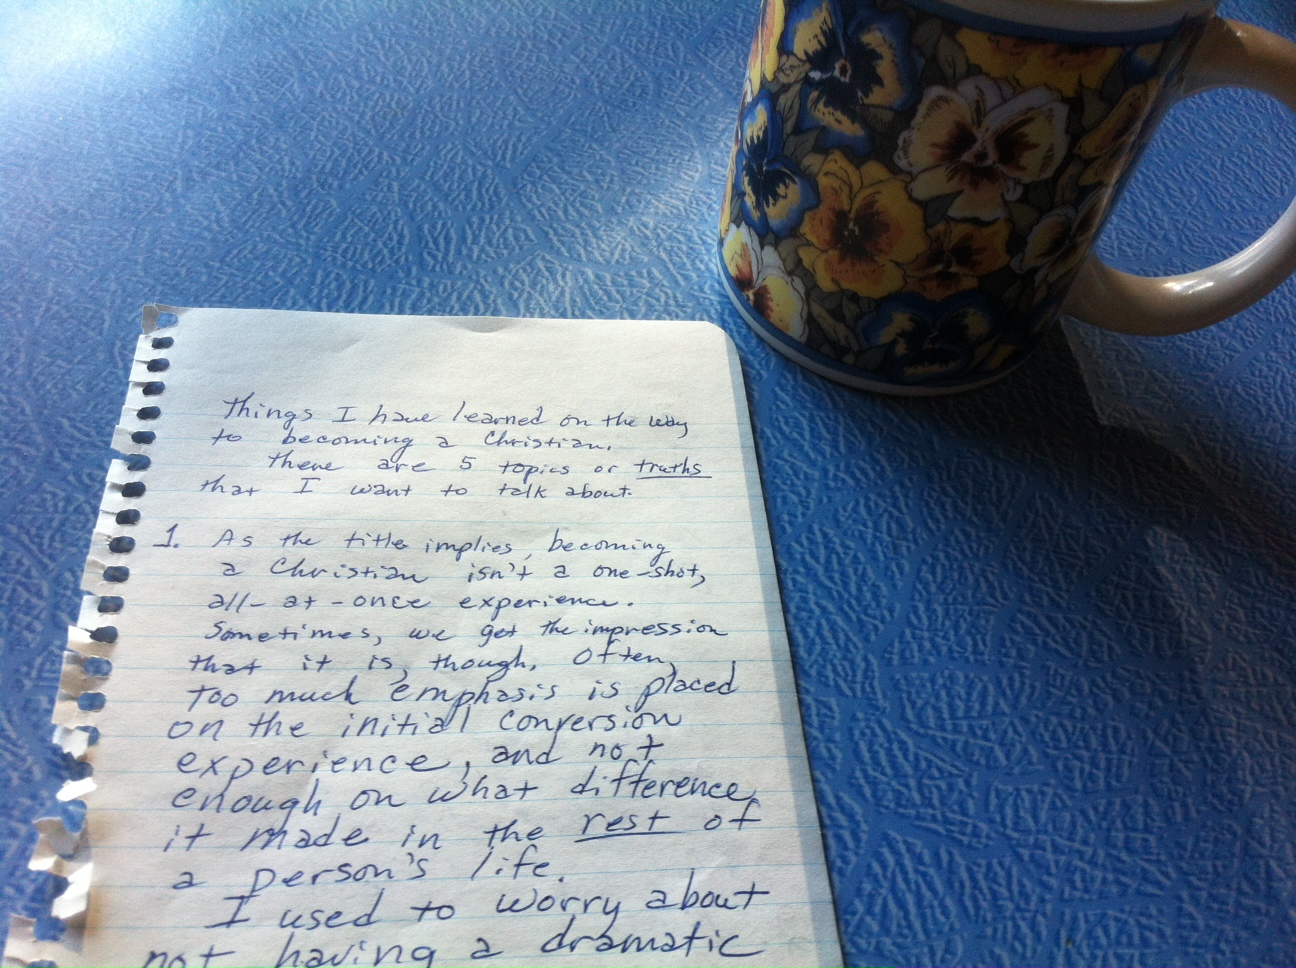 things I have learned on the way
to becoming a Christian.
there are 5 topics or truths
that I want to talk about.
1. As the title implies, becoming
a Christian isn't a one-shot,
all-at-once experience.
Sometimes, we get the impression
that it is, though. Often,
too much emphasis is placed
on the initial conversion
experience, and not
enough on what difference
it made in the rest of
a person's life.
I used to worry about
not having a dramatic